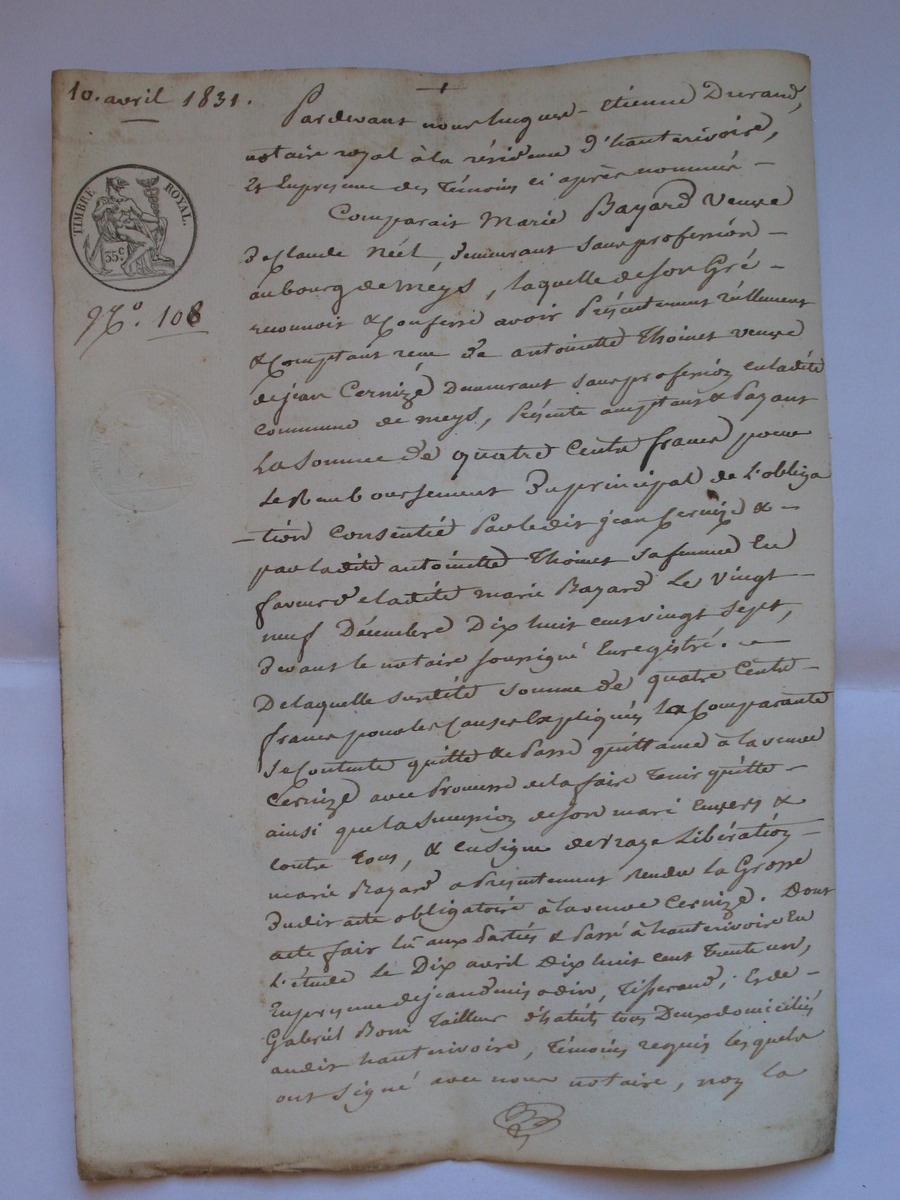 10. avril 1831.
TIMBRE ROYAL.
35 c
N.º 108
Pardevant nous hugues-etienne Durand,
notaire royal à la résidence d'hauterivoire,
& En presence des Témoins ci après nommés –
Comparait Marie Bayard Veuve
De Claude Néel, demeurant sans proféssion –
au bourg de meys, laquelle de son Gré –
reconnoit & Confesse avoir Présentement réellement
& Comptant recu de antoinette Thoinet veuve
de jean Cernize Demeurant sans profession en ladite
commune de meys, Présente acceptant & Payant
La Somme de quatre Cents francs pour
Le Remboursement Du principal de L'obliga
–tion Consentie Par ledit jean Cernize & –
par ladite antoinette Thoinet Sa femme En
faveur de ladite marie Bayard Le vingt
neuf Décembre Dix huit cent vingt Sept,
Devant le notaire soussigné Enregistré. –
De laquelle susdite somme de quatre Cents –
francs pour les Causes Expliquées la Comparante
Se Contente quitte & Passe quittance à la veuve
Cernize avec Promesse de la faire Tenir quitte –
ainsi que la Succession de Son mari Envers &
contre Tous, & En Signe de Vraye Libération –
marie Bayard a Présentement rendu la Grosse
Dudit acte obligatoire à la veuve Cernize. Dont
acte fait lû aux Parties & Passé à hauterivoire En
L'étude le Dix avril Dix huit cent Trente un,
En presence de jean denis odin, Tisserand, & de –
Gabriel Boni Tailleur d'habits tous Deux domiciliés
audit hauterivoire, Témoins requis lesquels
ont Signé avec nous notaire, non la